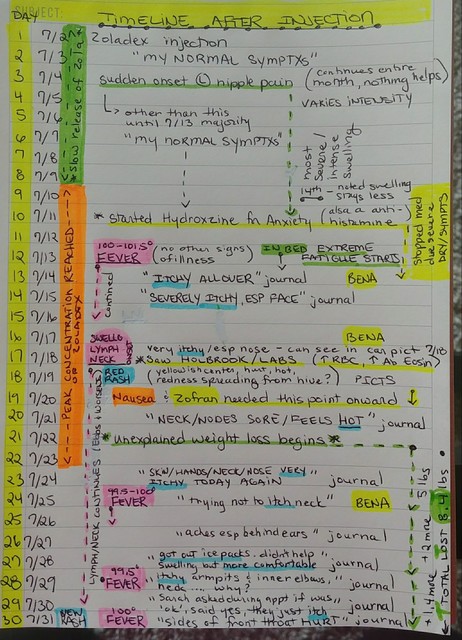 SUBJECT:
DAY TIMELINE AFTER INJECTION
1 7/2 Zoladex injection
2 7/3 "MY NORMAL SYMPTXS"
3 7/4 sudden onset (L) nipple pain (continues entire month, nothing helps)
4 7/5 VARIES INTENSITY
5 7/6 ↳ other than this
until 7/13 majority
6 7/7 "MY NORMAL SYMPTXS"
7 7/8
8 7/9
* slow release of Zola *
most severe/intense swelling
14th - noted swelling stays less
9 7/10
10 7/11 * Started Hydroxzine for Anxiety (also a anti-histamine
Stopped med due severe DRY/SYMPTS
11 7/12
12 7/13 100-101.5° FEVER (no other signs of illness) IN BED EXTREME FATIGUE STARTS
13 7/14 "ITCHY ALLOVER" journal BENA
14 7/15 "SEVERELY ITCHY, ESP FACE" journal
15 7/16
continued
16 7/17 SWELLO LYMPH NECK ONSET BENA
very itchy/esp nose - can see in car pict 7/18
17 7/18 * Saw HOLBROOK/LABS (↑RBC, ↑Ab Eosin)
18 7/19 RED RASH yellowish center, hurt, hot, redness spreading from hive?) PICTS
19 7/20 Nausea & Zofran needed this point onward
20 7/21 "NECK/NODES SORE/FEELS HOT" journal
21 7/22 * unexplained weight loss begins *
22 7/23
PEAK CONCENTRATION REACHED OF ZOLADEX
23 7/24 "SKN/HANDS/NECK/NOSE VERY ITCHY TODAY AGAIN" journal
24 7/25 99.5-100° FEVER "trying not to itch neck" BENA
25 7/26
26 7/27 "aches esp behind ears" journal
27 7/28 "got out ice packs. didn't help swelling but more comfortable" journal
28 7/29 99.5° FEVER "itchy armpits & inner elbows, why?" journal
29 7/30 "Sarah asked during appt if was 'ok', said yes, they just itch" journal
30 7/31 NEW RASH 100° FEVER "sides of front throat HURT" journal
LYMPH/NECK CONTINUES (Ebbs & Worsens)
5 lbs
+ 2 more
+ 1.4 more
TOTAL LOST 8.4 lbs